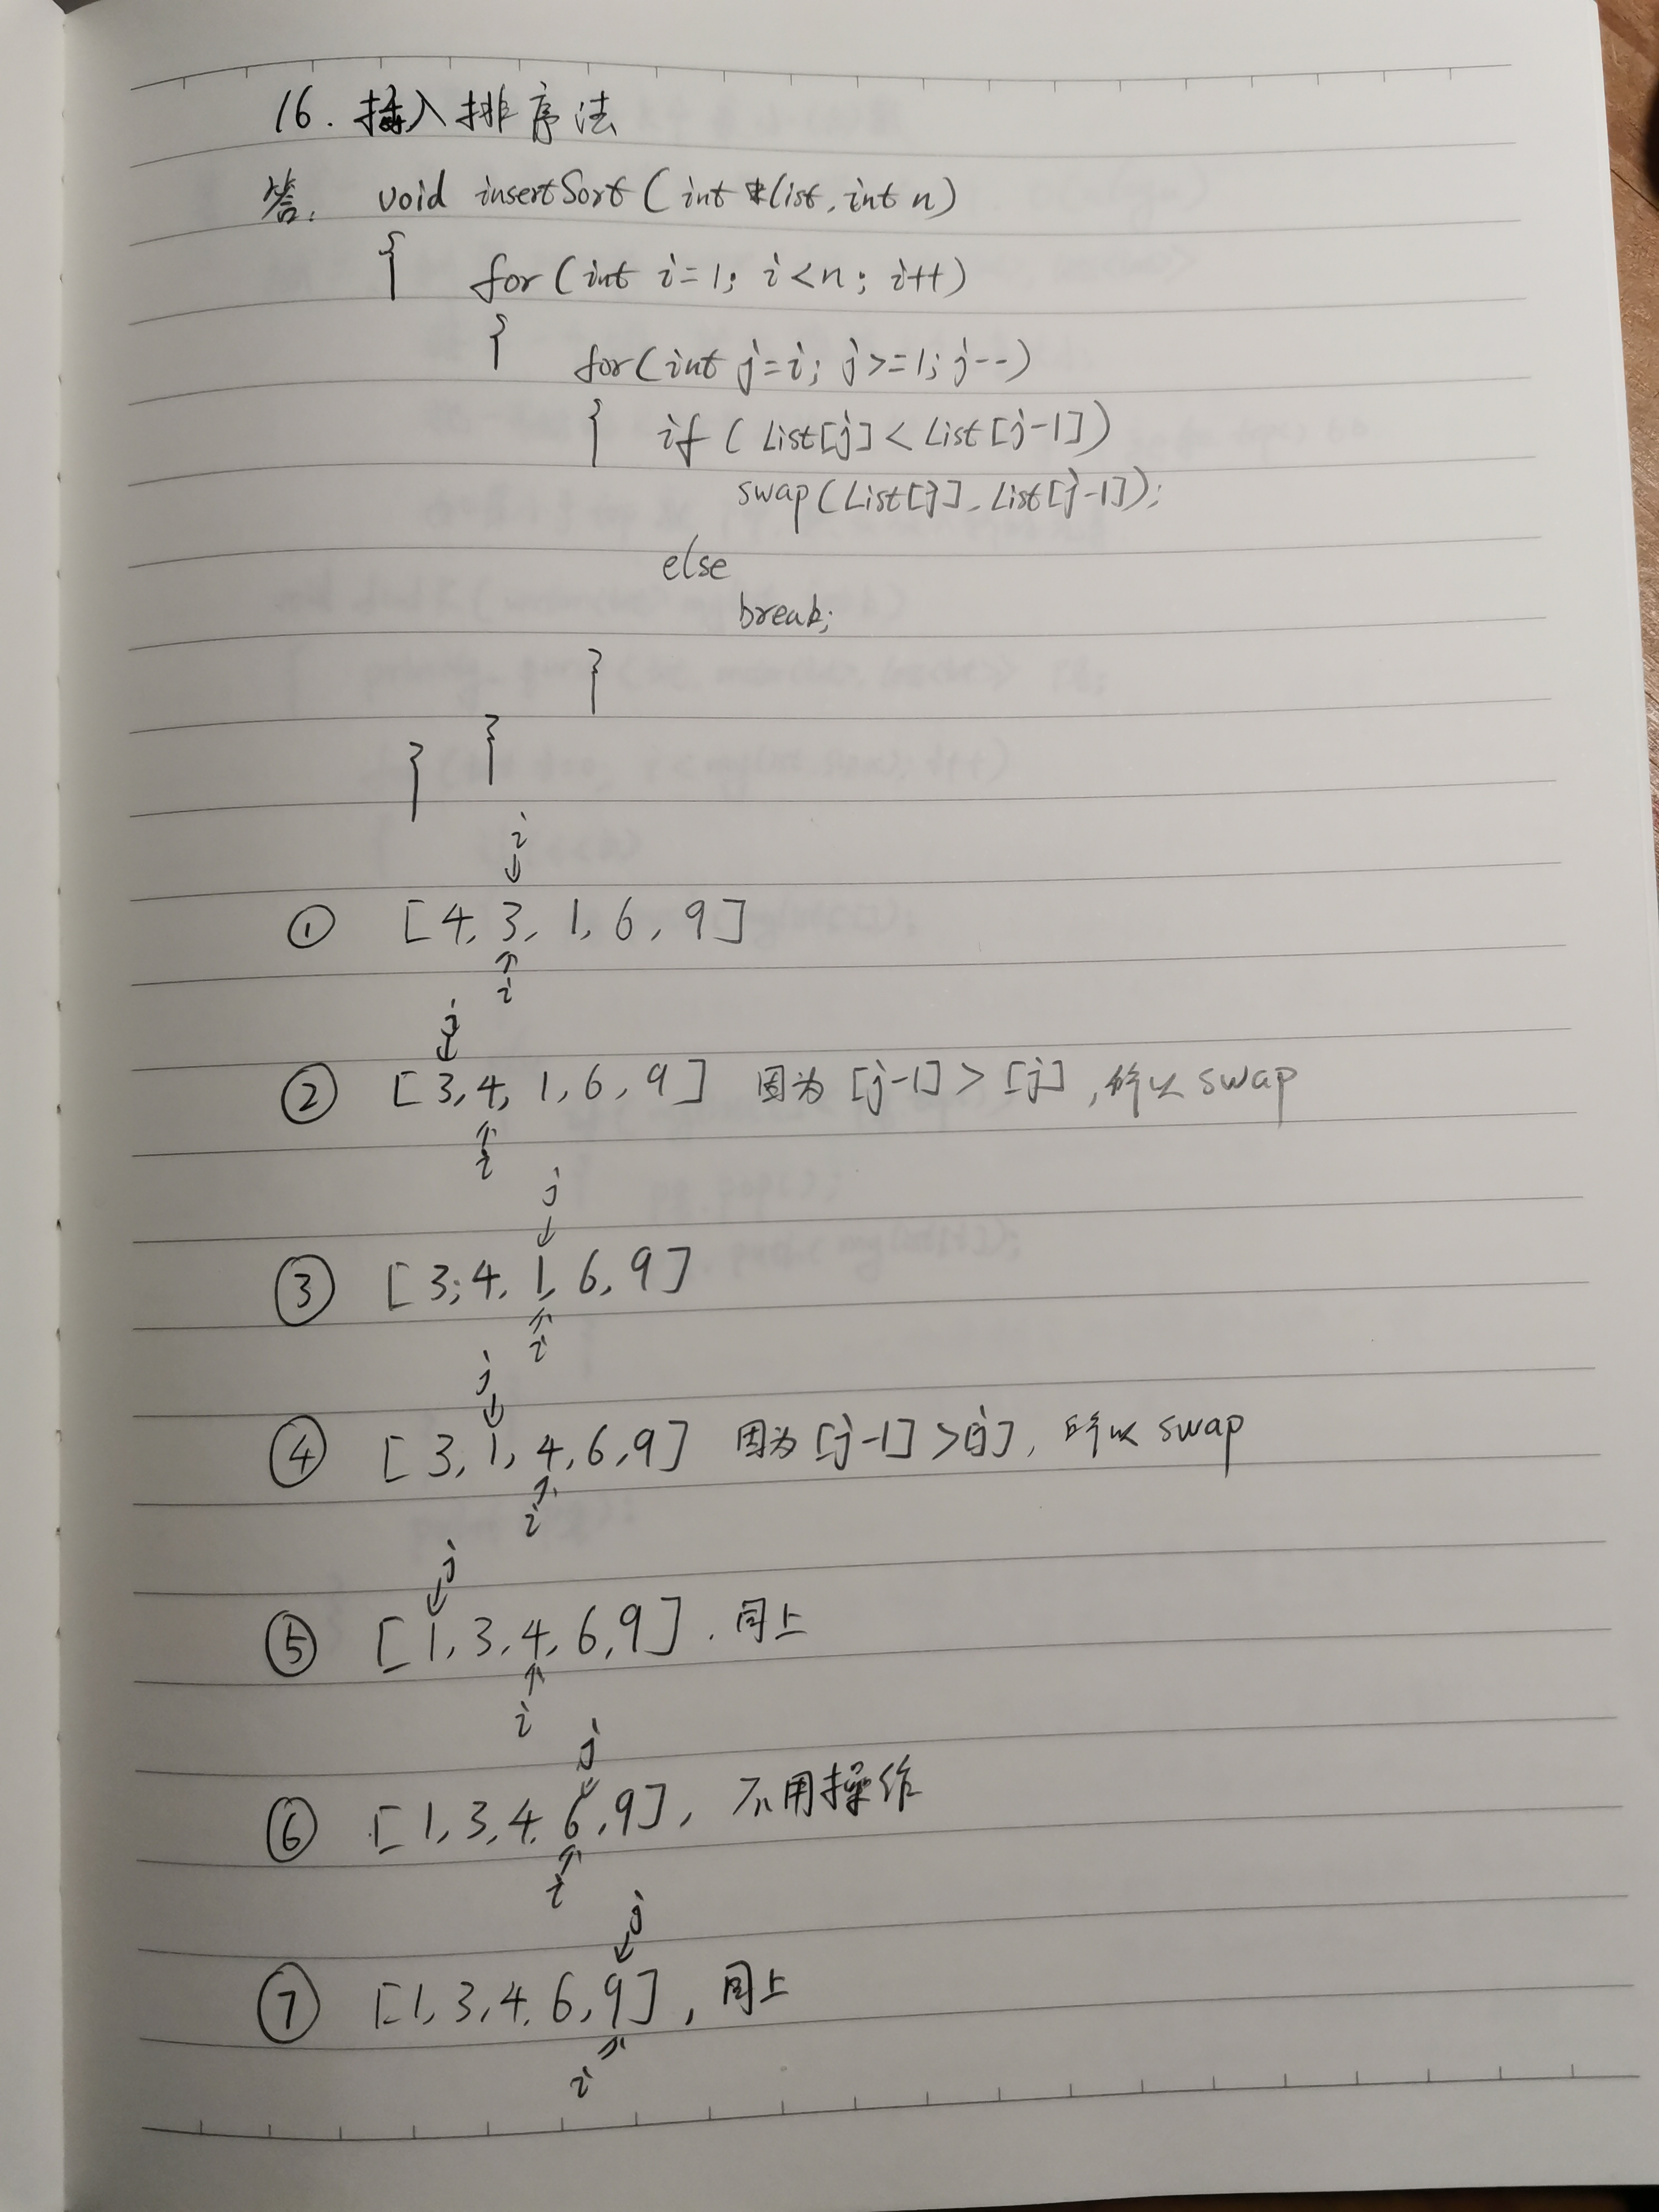 16. 插入排序法
答: void insertSort(int *list, int n)
{ for(int i=1; i<n; i++)
{ for(int j=i; j>=1; j--)
{ if (List[j]<List[j-1])
swap(List[j], List[j-1]);
else
break;
}
}
}
i
↓
① [4, 3, 1, 6, 9]
↑
i
j
↓
② [3, 4, 1, 6, 9] 因为[j-1]>[j],所以swap
↑
i
j
↓
③ [3, 4, 1, 6, 9]
↑
i
j
↓
④ [3, 1, 4, 6, 9] 因为[j-1]>[j],所以swap
↑
i
j
↓
⑤ [1, 3, 4, 6, 9]. 同上
↑
i
j
↓
⑥ [1, 3, 4, 6, 9], 不用操作
↑
i
j
↓
⑦ [1, 3, 4, 6, 9], 同上
↑
i